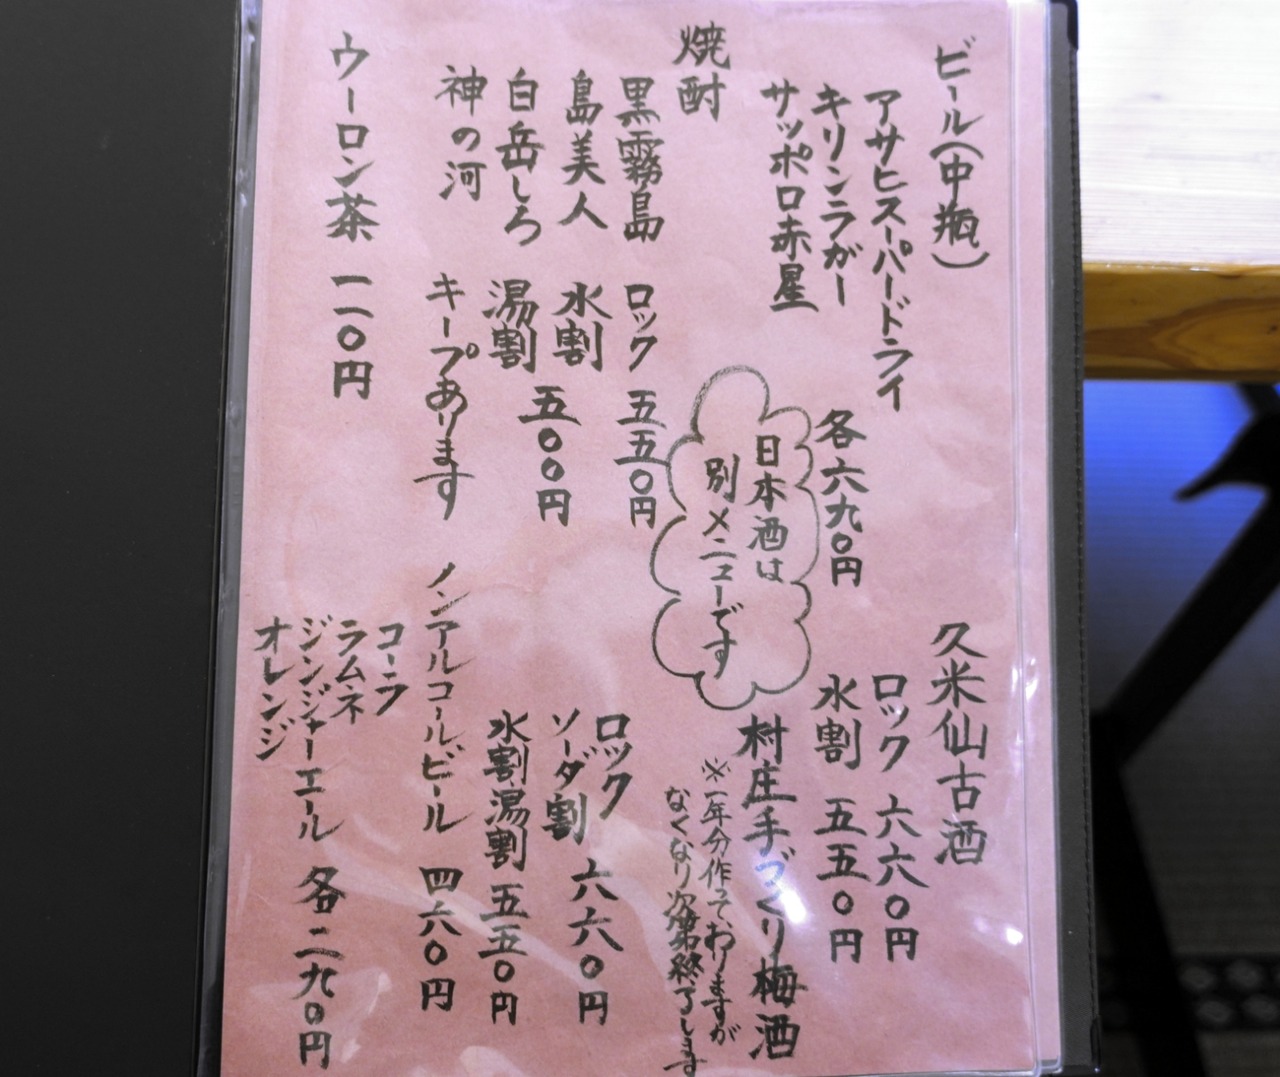 ビール(中瓶)
アサヒスーパードライ
キリンラガー
サッポロ赤星
各六九〇円
焼酎
黒霧島
島美人
白岳しろ
神の河
ロック 五五〇円
水割
湯割
五〇〇円
キープあります
ウーロン茶 一一〇円
日本酒は
別メニューです
久米仙古酒
ロック 六六〇円
水割 五五〇円
村庄手づくり梅酒
※一年分作っておりますが
なくなり次第終了します
ロック
ソーダ割 六六〇円
水割湯割 五五〇円
ノンアルコールビール 四六〇円
コーラ
ラムネ
ジンジャーエール
オレンジ
各二九〇円